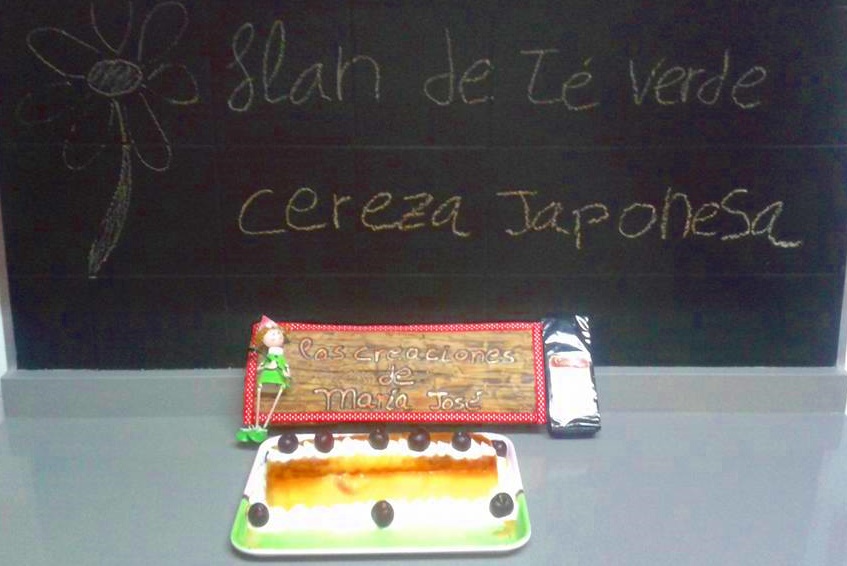 flan de Té verde
cereza Japonesa
las creaciones
de
María José